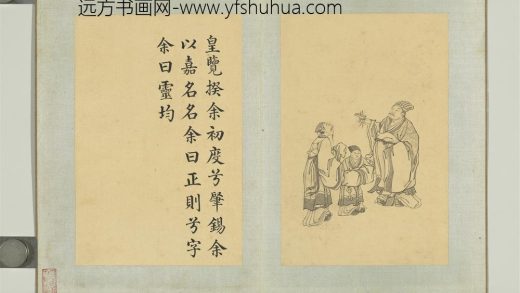 远方书画网-www.yfshuhua.com
皇覽揆余初度兮肇錫余
以嘉名名余曰正則兮字
余曰靈均